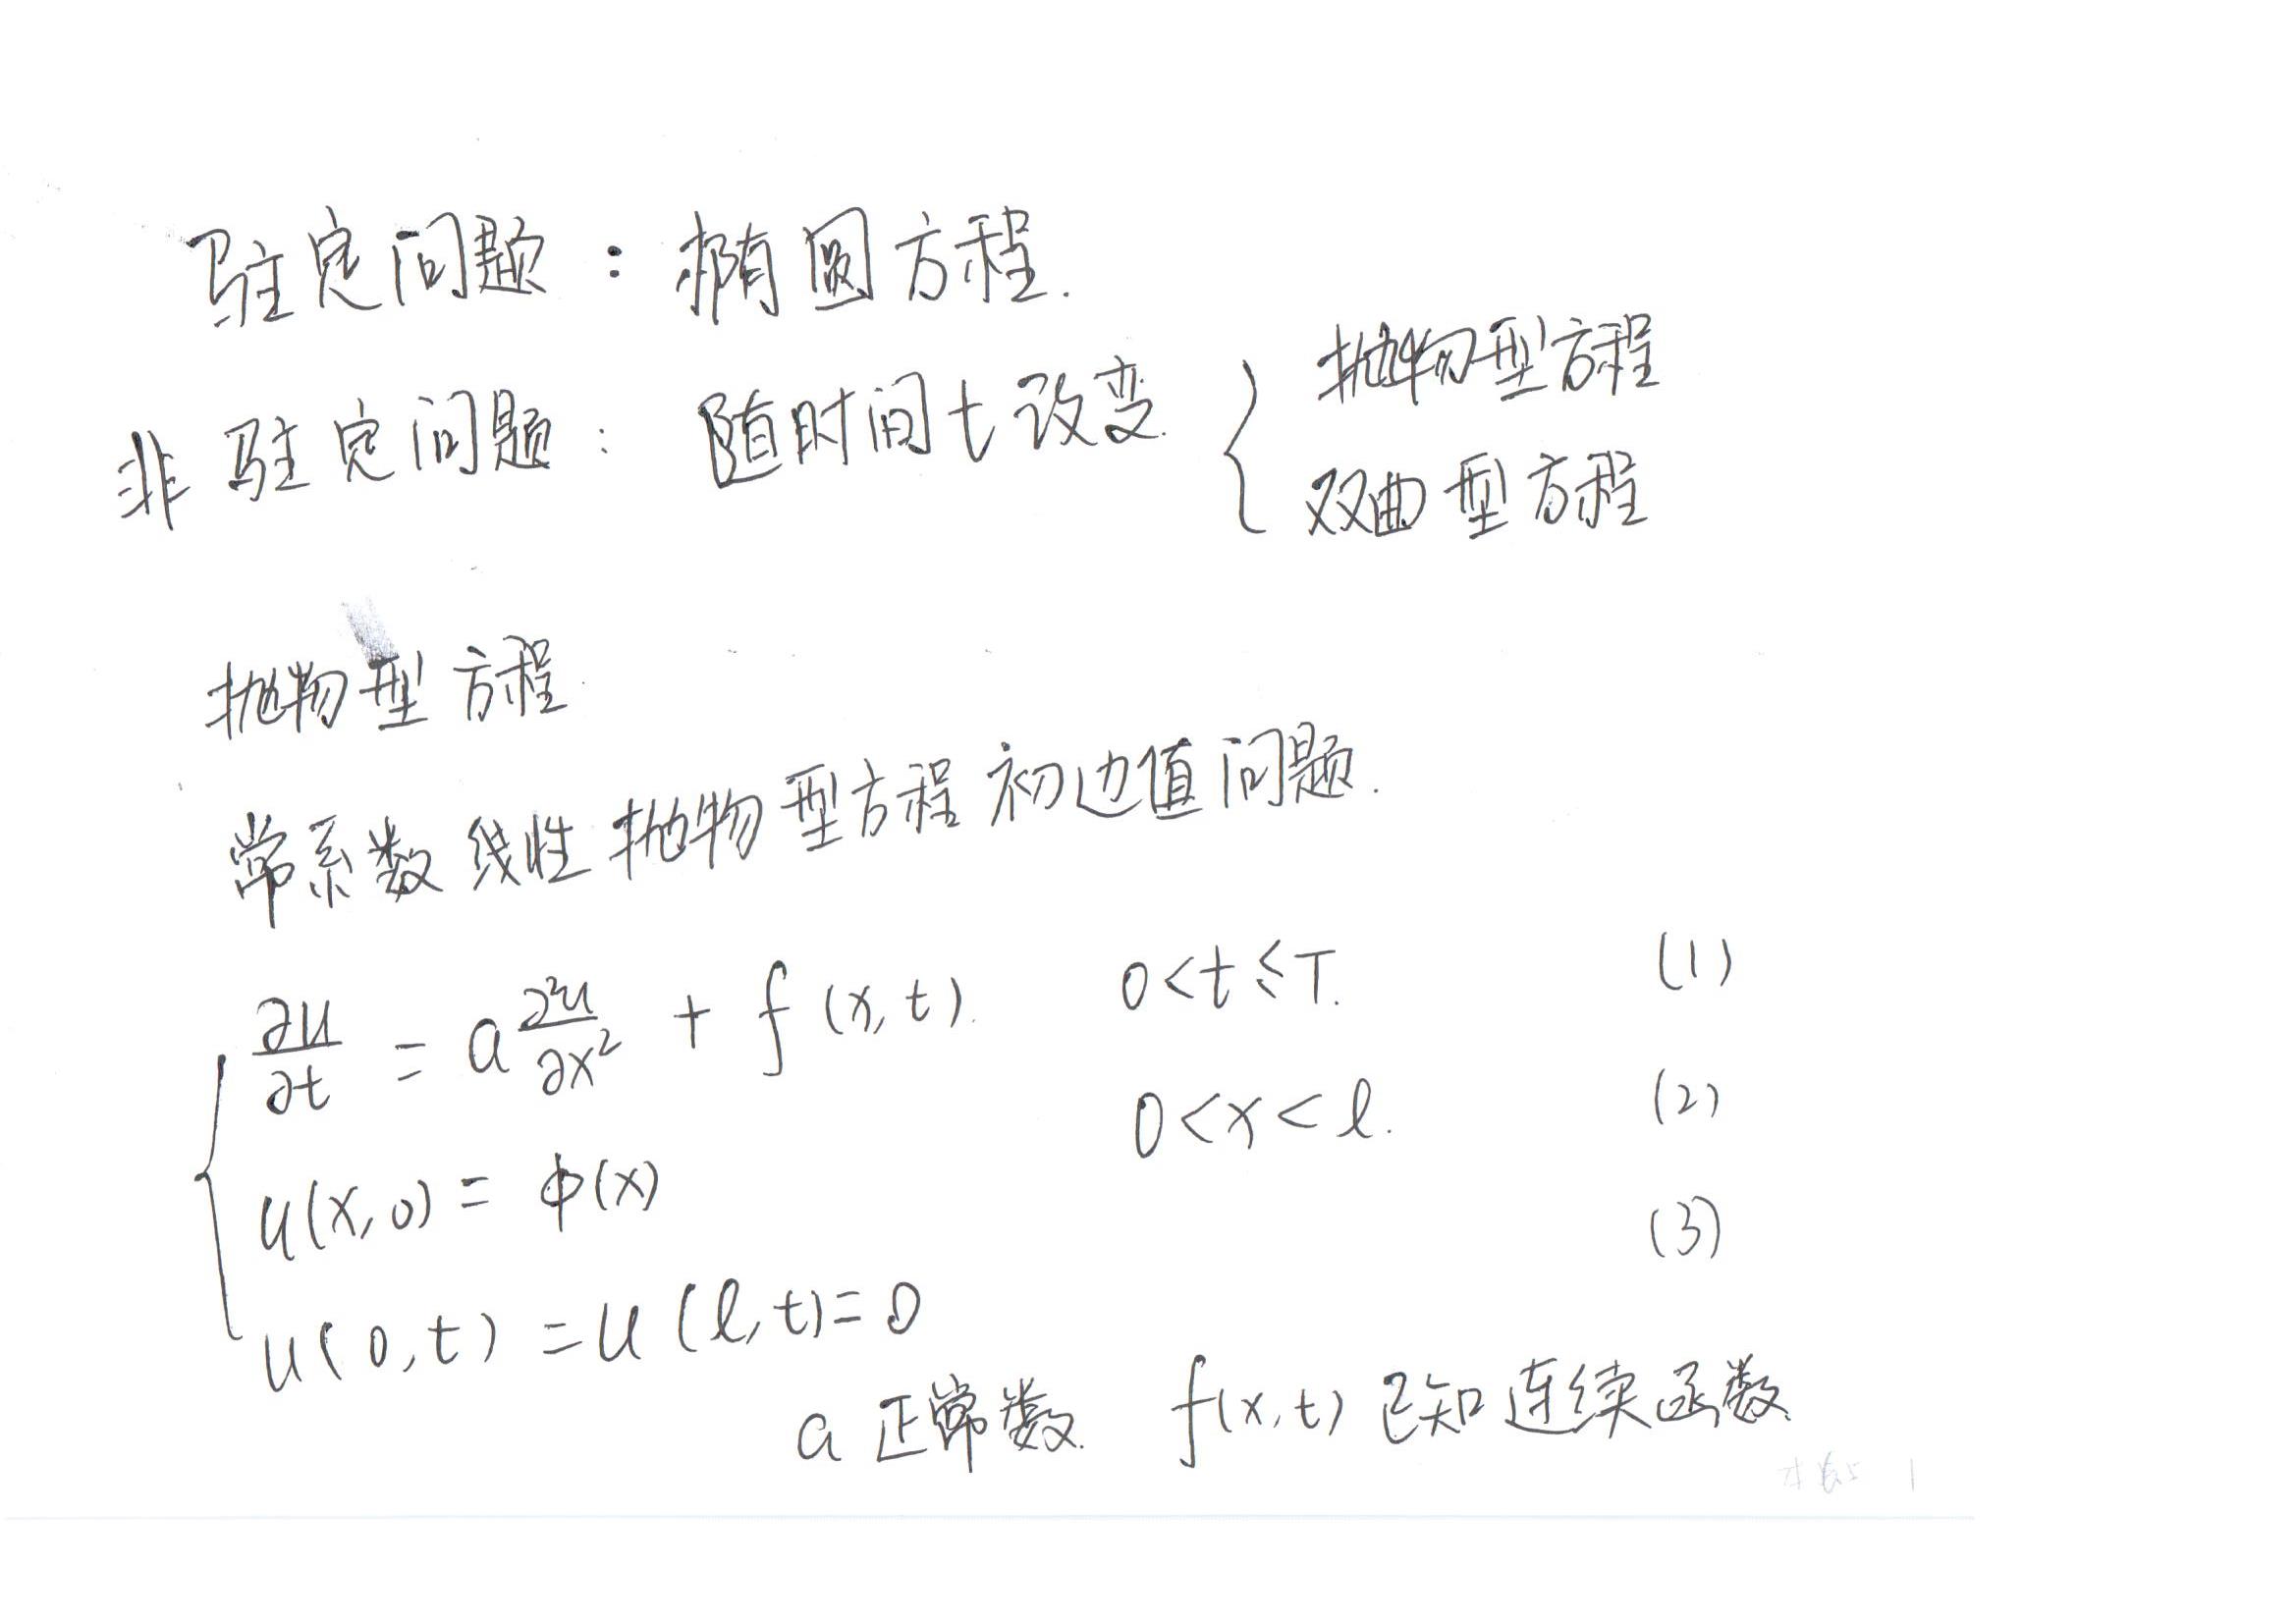 驻定问题：椭圆方程.
非驻定问题：随时间t改变. { 抛物型方程
双曲型方程
抛物型方程.
常系数线性抛物型方程初边值问题.
∂u/∂t = a ∂²u/∂x² + f(x,t). 0<t≤T. (1)
u(x,0) = φ(x) 0<x<l. (2)
u(0,t) = u(l,t) = 0 (3)
a 正常数. f(x,t) 已知连续函数.